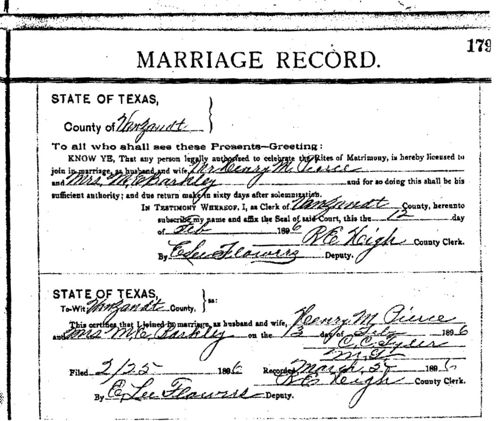 179
MARRIAGE RECORD.
STATE OF TEXAS,
County of Vanzandt
To all who shall see these Presents—Greeting:
KNOW YE, That any person legally authorized to celebrate the Rites of Matrimony, is hereby licensed to
join in marriage, as husband and wife, Mr Henry M. Pierce
and Mrs. M. E. Barkley and for so doing this shall be his
sufficient authority; and due return make in sixty days after solemnization.
IN TESTIMONY WHEREOF, I, as Clerk of Vanzandt County, hereunto
subscribe my name and affix the Seal of said Court, this the 12 day
of Feb 1896 County Clerk.
By E Lee Flowers Deputy.
STATE OF TEXAS, ss:
To-Wit, Vanzandt County,
This certifies that I joined in marriage, as husband and wife, Henry M. Pierce
and Mrs M. E. Barkley on the 13 day of Feb 1896
C. C. Tyler
M. G.
Filed 2/25 1896 Recorded March 189
County Clerk.
By E. Lee Flowers Deputy.